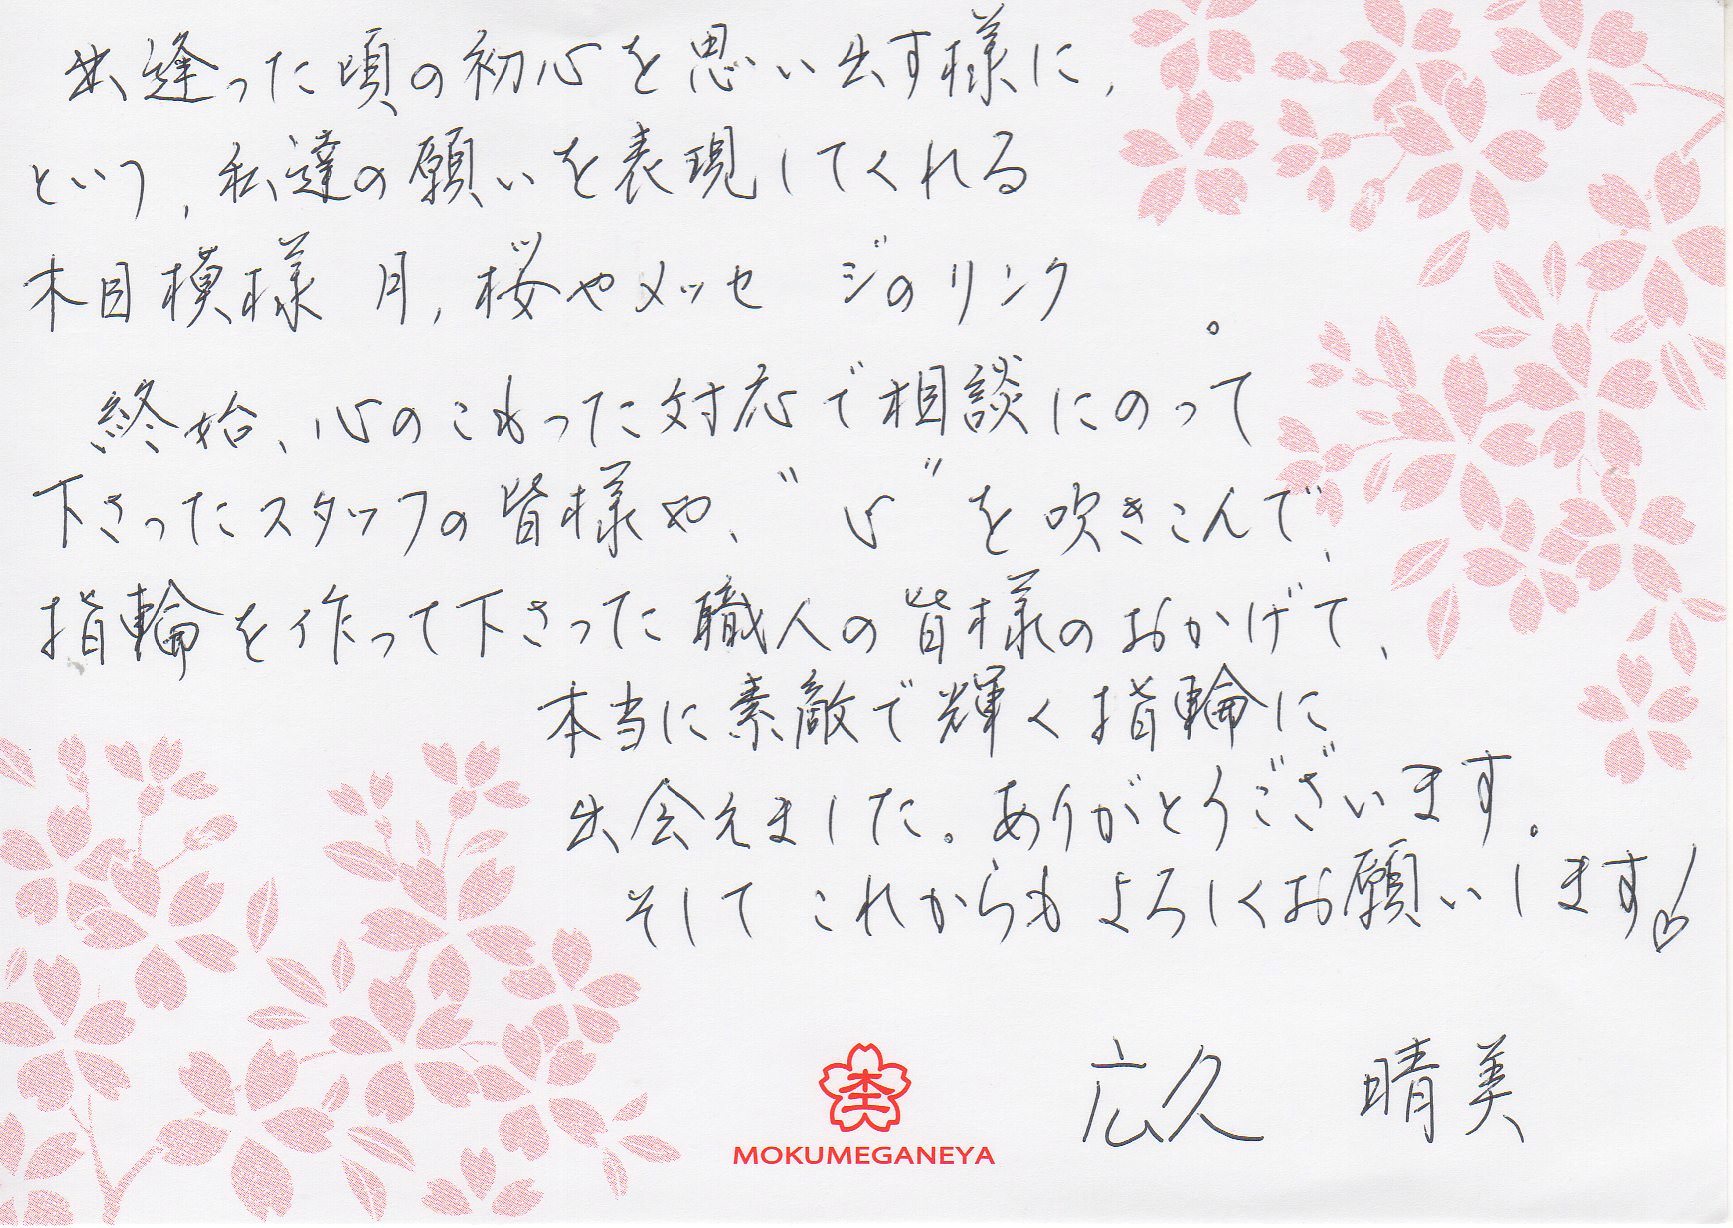 出逢った頃の初心を思い出す様に、
という、私達の願いを表現してくれる
木目模様 月、桜やメッセ ジのリンク 。
終始、心のこもった対応で相談にのって
下さったスタッフの皆様や、"心"を吹きこんで、
指輪を作って下さった職人の皆様のおかげで、
本当に素敵で輝く指輪に
出会えました。ありがとうございます。
そしてこれからもよろしくお願いします♡
広久 晴美
杢
MOKUMEGANEYA